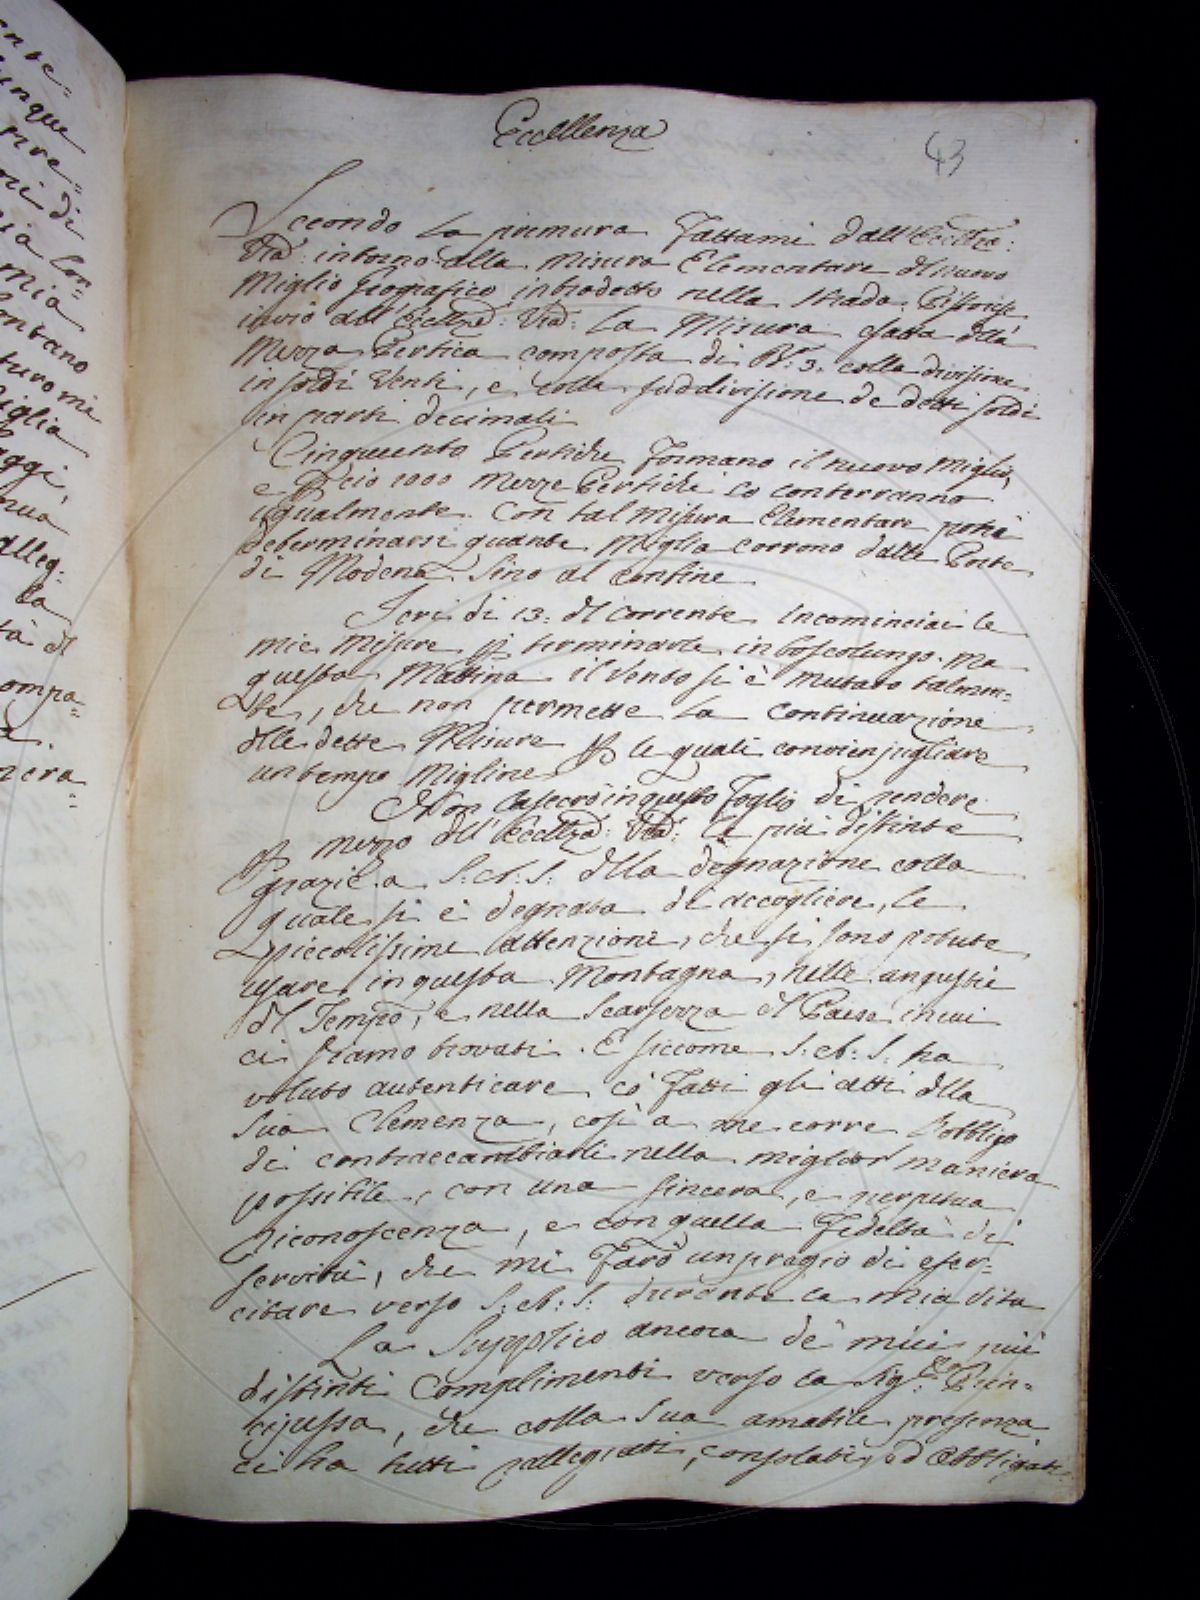 ente=
unque
pre=
oni di
ia Con=
mia
ontano
turo mi
iglia
aggi,
nua
alleg:
la
tà dl
ompa=
a.
nera=
Eccellenza
43
Secondo la premura fattami dall'Ecc̃llza:
Vrã: intorno alla misura Elementare dl nuovo
Miglio geografico introdotto nella Strada Pistoiese
invio all'Ecc̃llza: Vrã: la Misura esatta della
Mezza Pertica composta di Br: 3. colla divisione
in soldi Venti, e colla suddivisione de detti soldi
in parti decimali
Cinquecento Pertiche formano il nuovo Miglio,
e p ciò 1000 Mezze Pertiche lo conterranno
ugualmente. Con tal misura Elementare potrà
determinarsi quante Miglia corrono dalle Porte
di Modena sino al confine
Ieri di 13: dl corrente incominciai le
mie Misure p terminarle in boscolungo. ma
questa Mattina il Vento si è mutato talmen=
te, che non permette la continuazione
dlle dette Misure p le quali convien pigliare
un tempo Migliore
Non lascerò in questo foglio di rendere
p mezzo dll'Ecc̃llza: Vrã: le più distinte
grazie a S: A: S: dlla degnazione colla
quale si è degnata di accogliere, le
piccolissime attenzioni, che si sono potute
usare in questa Montagna, nelle angustie
dl Tempo, e nella Scarsezza dl Paese in cui
ci siamo trovati. E siccome S: A: S: ha
voluto autenticare cò fatti gli atti dlla
Sua Clemenza, così a me corre l'obbligo
di contraccambiarli nella miglior maniera
possibile, con una sincera, e perpetua
riconoscenza, e con quella fedeltà di
servitù, che mi farò un pregio di eser=
citare verso S: A: S: durante la mia vita
La Supplico ancora de' miei più
distinti Complimenti verso la Sig.ra Prin=
cipessa, che colla sua amabile presenza
ci ha tutti rallegrati, consolati, ed obbligati